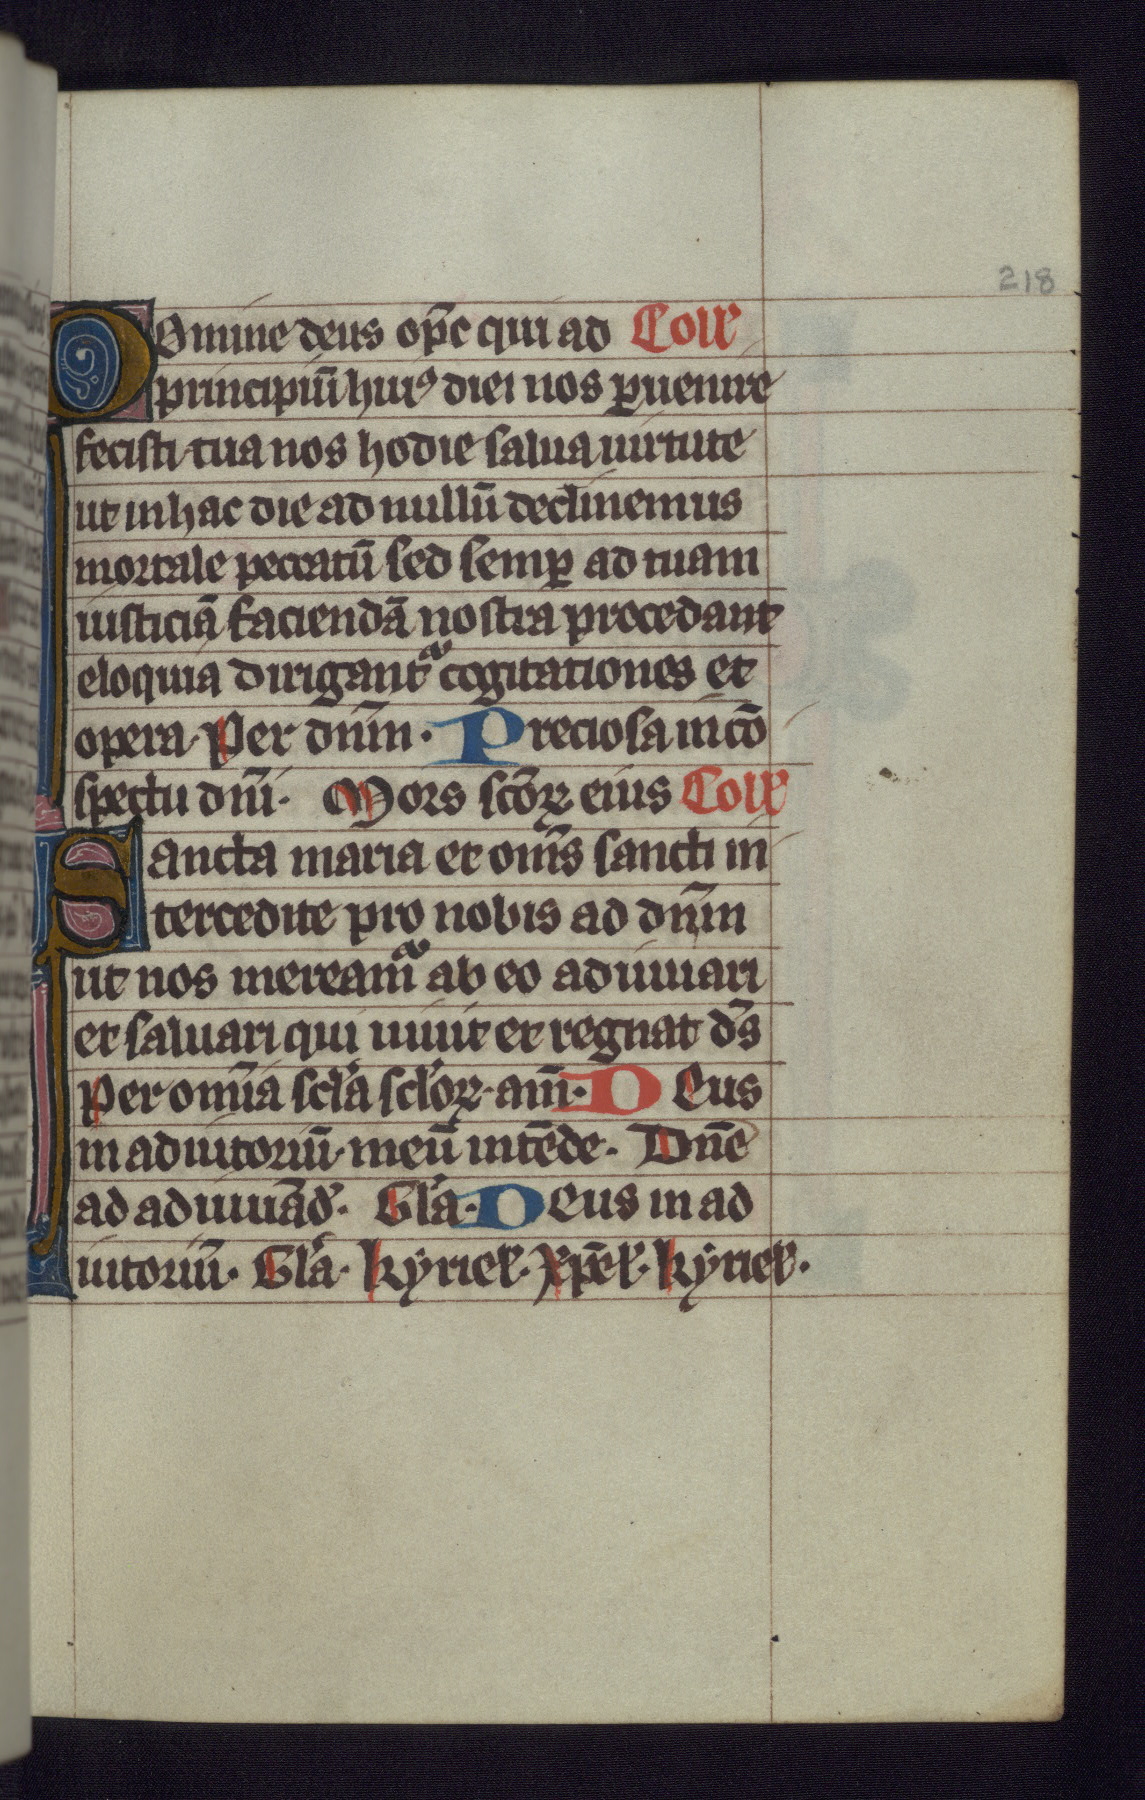 218
Domine deus op̄c qui ad Coll'
principiū huiꝰ diei nos ꝑuenire
fecisti tua nos hodie salua uirtute
ut in hac die ad nullū declinemus
mortale peccatū sed semꝑ ad tuam
iusticiā faciendā nostra procedant
eloquia dirigant᷑ cogitationes et
opera. Per dn̄m. Preciosa in cō
spectu dn̄i. Mors sc̄oꝝ eius Coll'
Sancta maria et om̄s sancti in
tercedite pro nobis ad dn̄m
ut nos meream᷑ ab eo adiuuari
et saluari qui uiuit et regnat d̄s
Per om̄ia scl̄a scl̄oꝝ. am̄. Deus
in adiutoriū meū intēde. Dn̄e
ad adiuuād'. Gl̄a. Deus in ad
iutoriū. Gl̄a. kyriel'. xp̄el'. kyriel'.